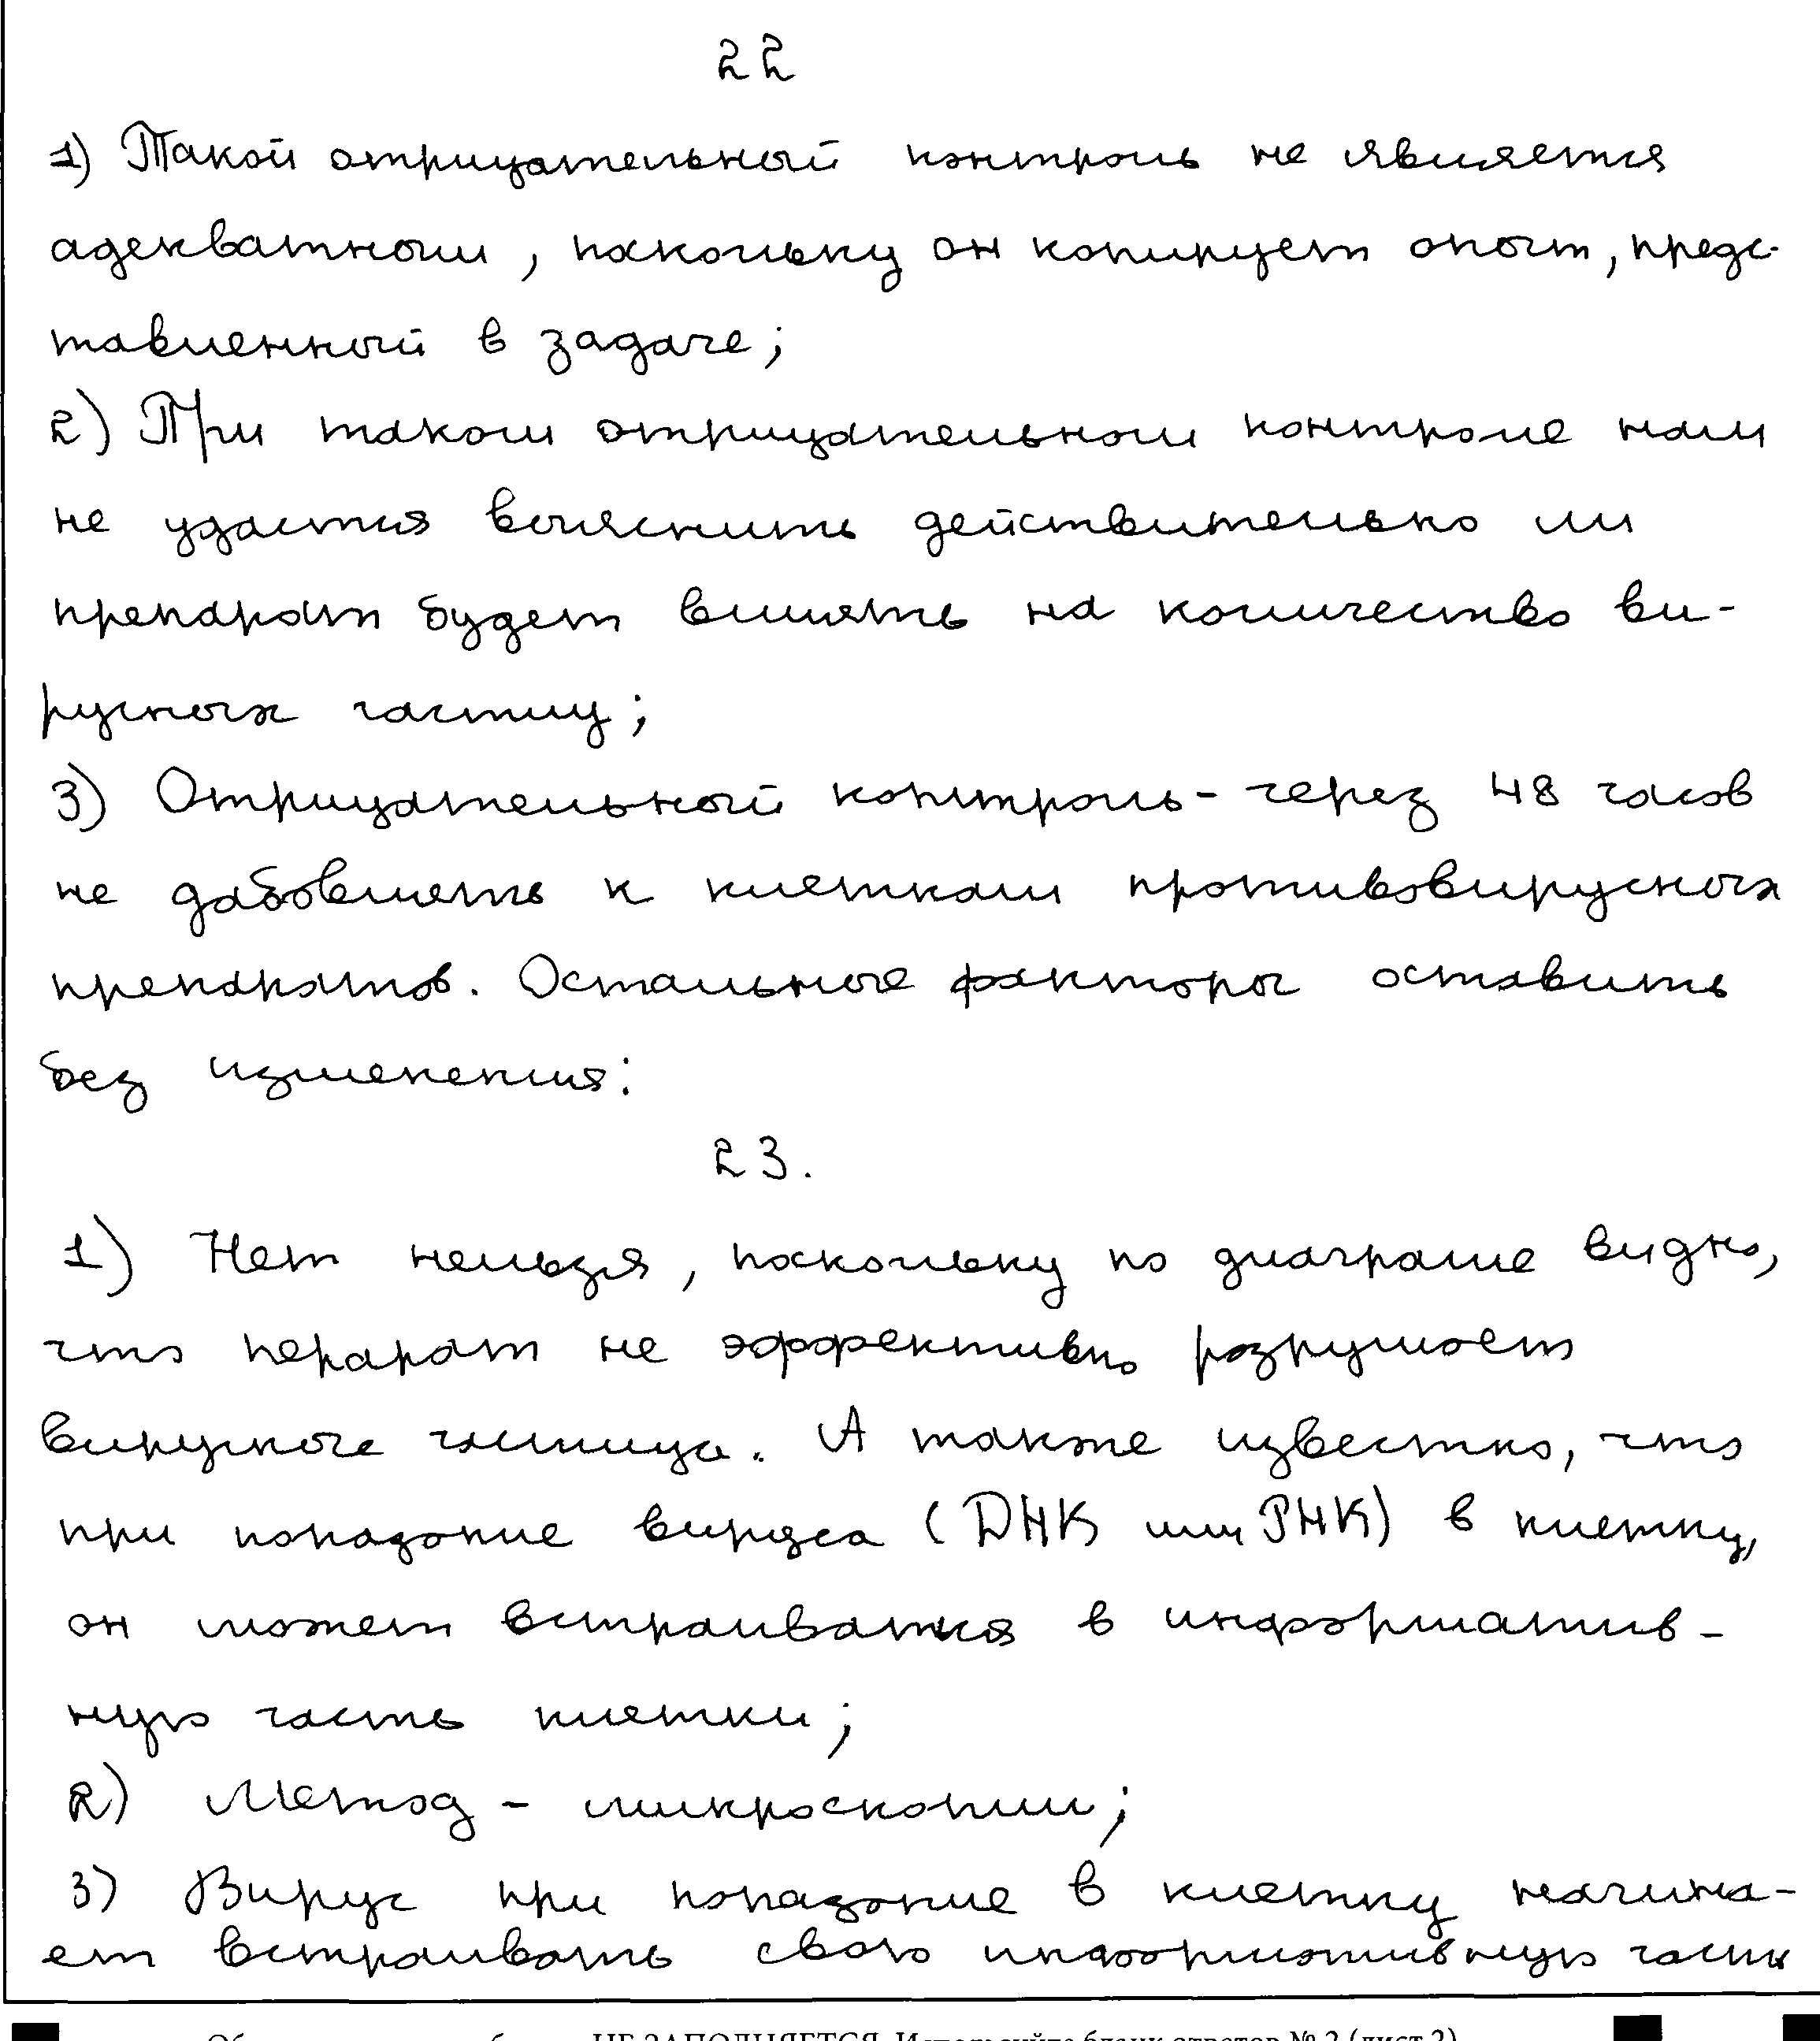 22
1) Такой отрицательный контроль не является
адекватным, поскольку он копирует опыт, предс-
тавленный в задаче;
2) При таком отрицательном контроле нам
не удастся выяснить действительно ли
препарат будет влиять на количество ви-
русных частиц;
3) Отрицательный контроль - через 48 часов
не добовлять к клеткам противовирусных
препаратов. Остальные факторы оставить
без изменения:
23.
1) Нет нельзя, поскольку по диаграме видно,
что перарат не эффективно разрушает
вирусные частицы. А также известно, что
при попадание вируса (ДНК или РНК) в клетку,
он может встраиватся в информатив-
ную часть клетки;
2) Метод - микроскопии;
3) Вирус при попадание в клетку начина-
ет встраивать свою информативную часть
НЕ ЗАПОЛНЯЕТСЯ. Используйте бланк ответов № 2 (лист 2)